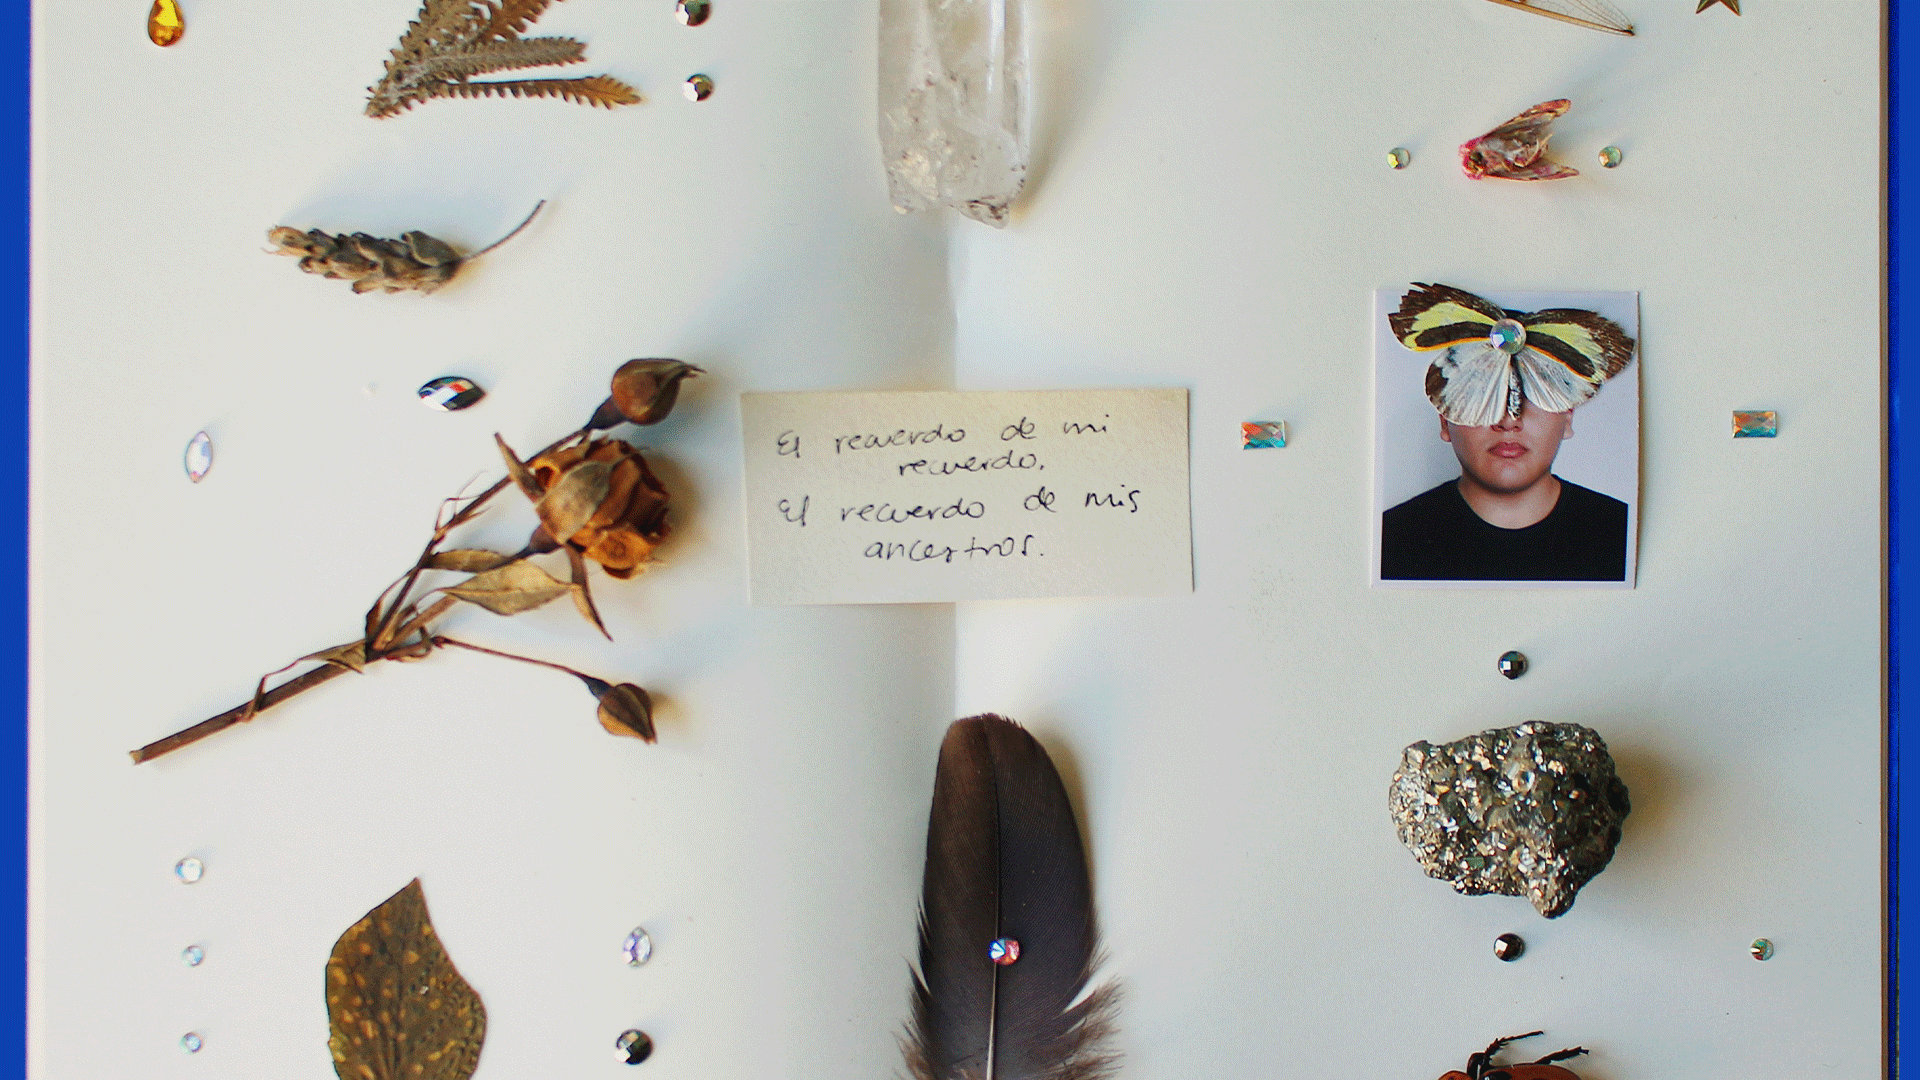 El recuerdo de mi
recuerdo.
El recuerdo de mis
ancestros.